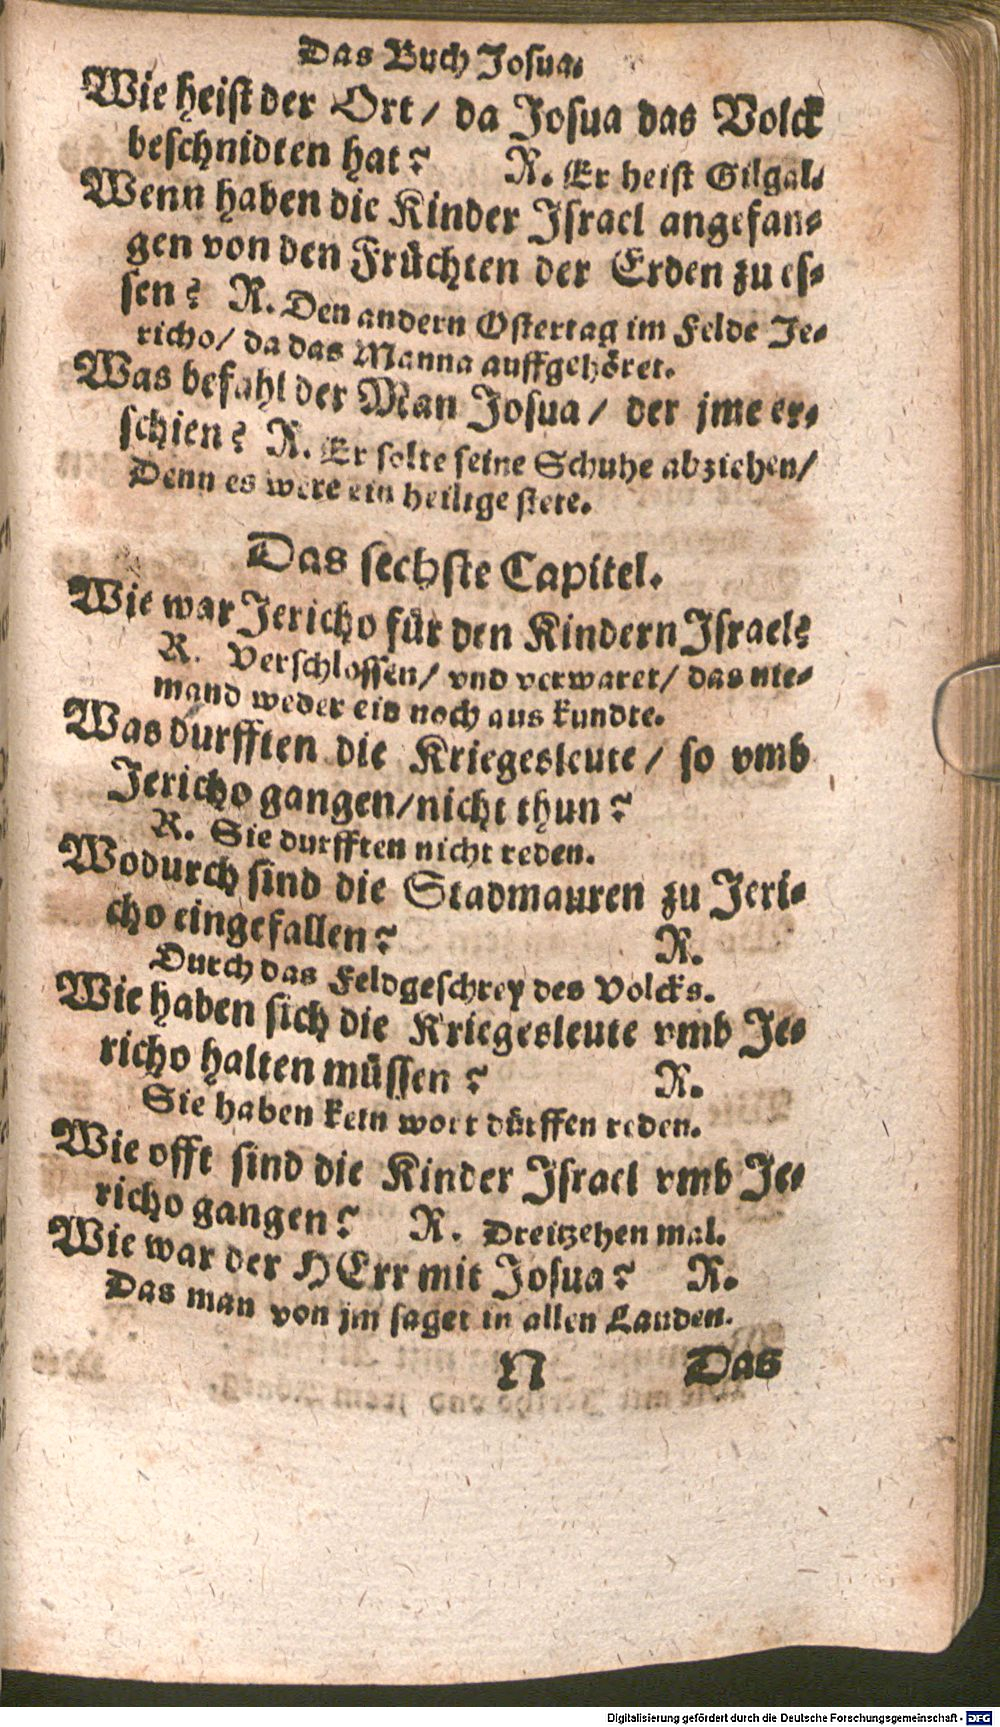 Das Buch Josua.
Wie heist der Ort / da Josua das Volck
beschnidten hat? R. Er heist Gilgal.
Wenn haben die Kinder Israel angefan-
gen von den Früchten der Erden zu es-
sen? R. Den andern Ostertag im Felde Je-
richo / da das Manna auffgehöret.
Was befahl der Man Josua / der jme er-
schien? R. Er solte seine Schuhe abziehen /
Denn es were ein heilige stete.
Das sechste Capitel.
Wie war Jericho für den Kindern Israel?
R. Verschlossen / vnd verwaret / das nie-
mand weder ein noch aus kundte.
Was durfften die Kriegesleute / so vmb
Jericho gangen / nicht thun?
R. Sie durfften nicht reden.
Wodurch sind die Stadmauren zu Jeri-
cho eingefallen? R.
Durch das Feldgeschrey des Volcks.
Wie haben sich die Kriegesleute vmb Je-
richo halten müssen? R.
Sie haben kein wort dürffen reden.
Wie offt sind die Kinder Israel vmb Je-
richo gangen? R. Dreitzehen mal.
Wie war der HErr mit Josua? R.
Das man von jm saget in allen Landen.
N Das
Digitalisierung gefördert durch die Deutsche Forschungsgemeinschaft - DFG